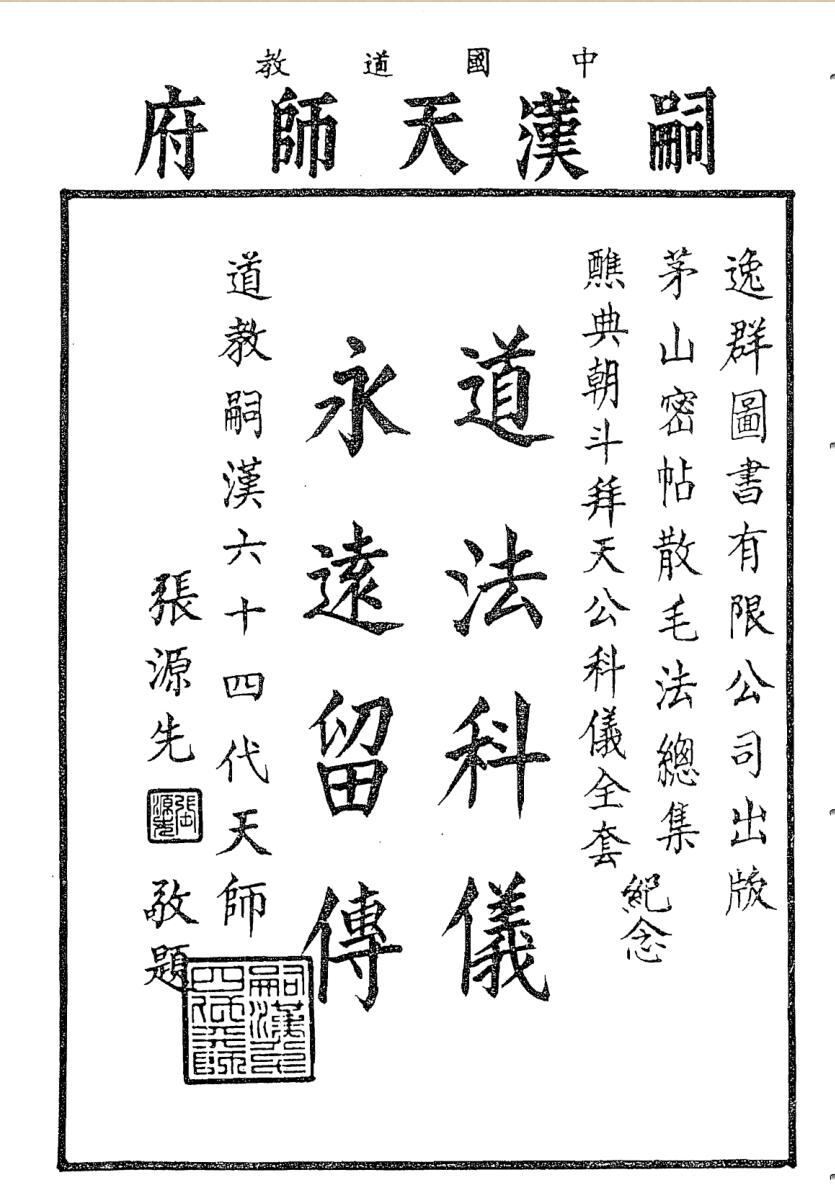 中國道教
嗣漢天師府
逸群圖書有限公司出版
茅山密帖散毛法總集
醮典朝斗拜天公科儀全套
紀念
道法科儀
永遠留傳
道教嗣漢六十四代天師
張源先
張源先
敬題